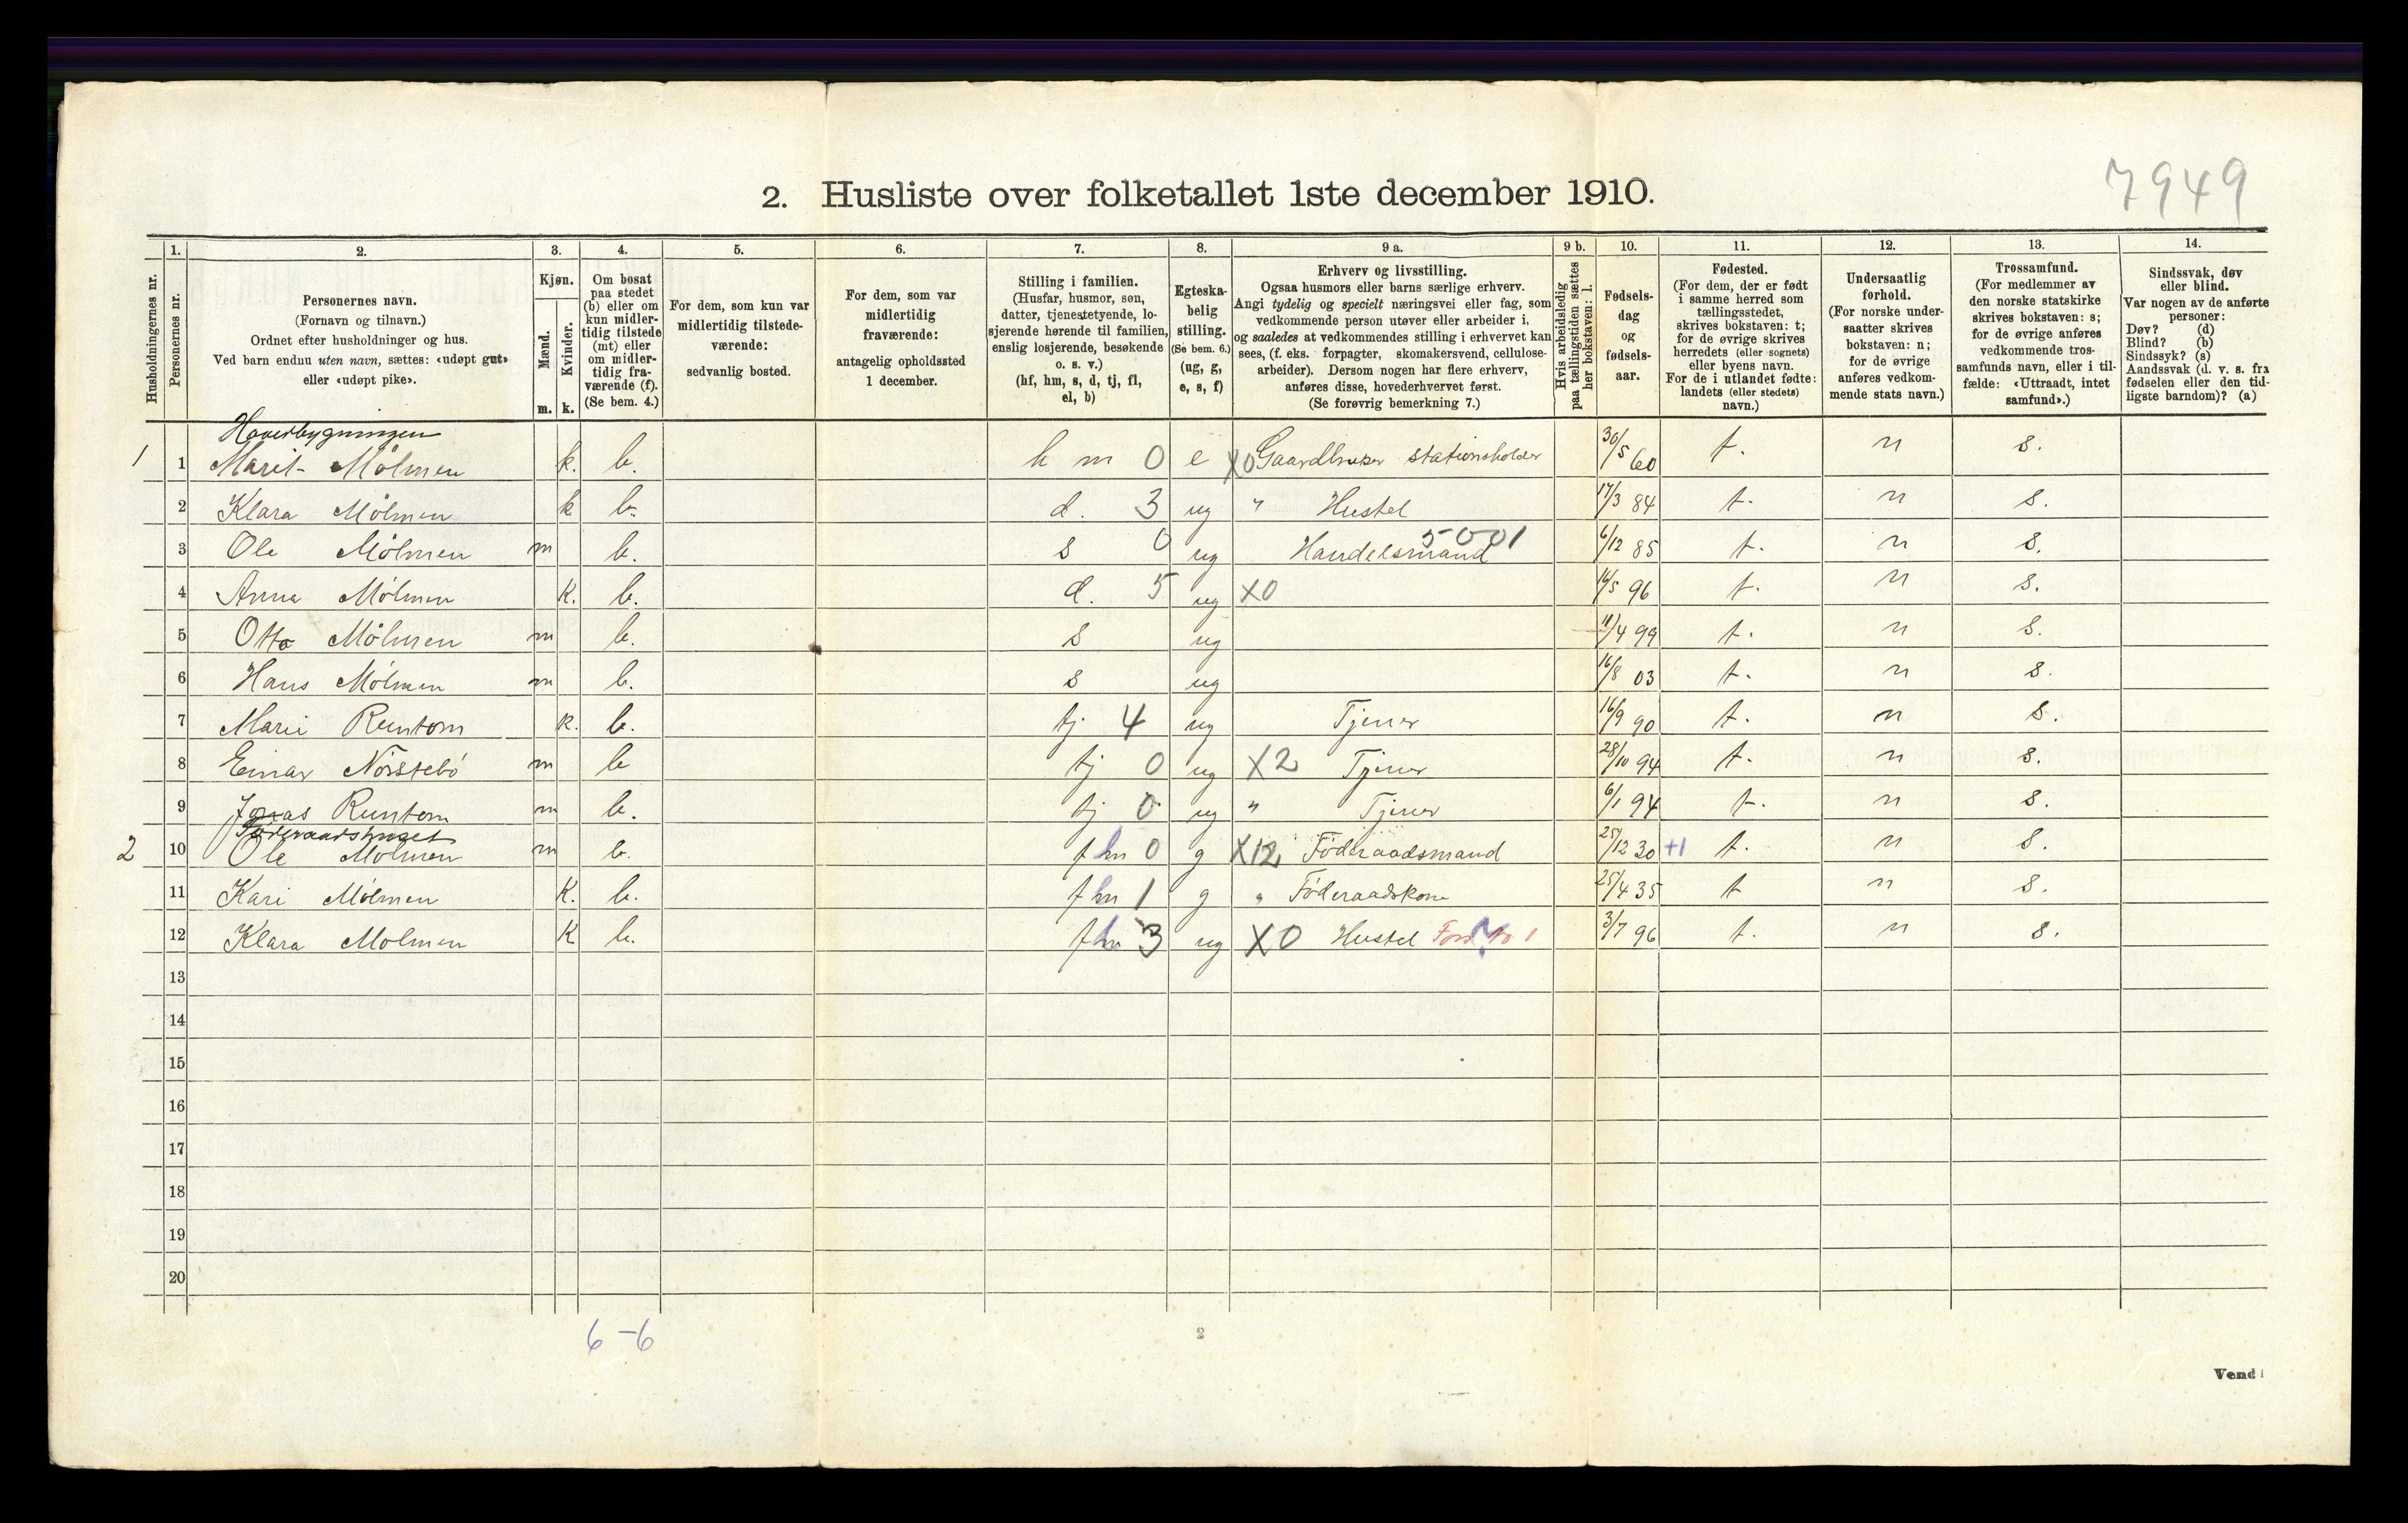 7949
2. Husliste over folketallet 1ste december 1910.
Husholdningernes nr.
1.
Personernes nr.
2.
Personernes navn.
(Fornavn og tilnavn.)
Ordnet efter husholdninger og hus.
Ved barn endnu uten navn, sættes: «udøpt gut»
eller «udøpt pike».
3.
Kjøn.
Mænd.
m.
Kvinder.
k.
4.
Om bosat
paa stedet
(b) eller om
kun midler-
tidig tilstede
(mt) eller
om midler-
tidig fra-
værende (f).
(Se bem. 4.)
5.
For dem, som kun var
midlertidig tilstede-
værende:
sedvanlig bosted.
6.
For dem, som var
midlertidig
fraværende:
antagelig opholdssted
1 december.
7.
Stilling i familien.
(Husfar, husmor, søn,
datter, tjenestetyende, lo-
sjerende hørende til familien,
enslig losjerende, besøkende
o. s. v.)
(hf, hm, s, d, tj, fl,
el, b)
8.
Egteska-
belig
stilling.
(Se bem. 6.)
(ug, g,
e, s, f)
9 a.
Erhverv og livsstilling.
Ogsaa husmors eller barns særlige erhverv.
Angi tydelig og specielt næringsvei eller fag, som
vedkommende person utøver eller arbeider i,
og saaledes at vedkommendes stilling i erhvervet kan
sees, (f. eks. forpagter, skomakersvend, cellulose-
arbeider). Dersom nogen har flere erhverv,
anføres disse, hovederhvervet først.
(Se forøvrig bemerkning 7.)
9 b.
Hvis arbeidsledig
paa tællingstiden sættes
her bokstaven: l.
10.
Fødsels-
dag
og
fødsels-
aar.
11.
Fødested.
(For dem, der er født
i samme herred som
tællingsstedet,
skrives bokstaven: t;
for de øvrige skrives
herredets (eller sognets)
eller byens navn.
For de i utlandet fødte:
landets (eller stedets)
navn.)
12.
Undersaatlig
forhold.
(For norske under-
saatter skrives
bokstaven: n;
for de øvrige
anføres vedkom-
mende stats navn.)
13.
Trossamfund.
(For medlemmer av
den norske statskirke
skrives bokstaven: s;
for de øvrige anføres
vedkommende tros-
samfunds navn, eller i til-
fælde: «Uttraadt, intet
samfund».)
14.
Sindssvak, døv
eller blind.
Var nogen av de anførte
personer:
Døv? (d)
Blind? (b)
Sindssyk? (s)
Aandssvak (d. v. s. fra
fødselen eller den tid-
ligste barndom)? (a)
Hovedbygningen
1 1 Marit Mölmen k. b. h m 0 e X0 Gaardbruker stationsholder 30/5 60 t. n s.
2 Klara Mölmen k b. d. 3 ug " Hustel 17/3 84 t. n s.
3 Ole Mölmen m b. s 0 ug Handelsmand 5001 6/12 85 t. n s.
4 Anna Mölmen K. b. d. 5 ug X0 14/5 96 t. n s.
5 Otto Mölmen m b. s ug 11/4 99 t. n s.
6 Hans Mölmen m b. s ug 16/8 03 t. n s.
7 Marie Runtom k. b. tj 4 ug Tjener 16/9 90 t. n s.
8 Einar Nörstebö m b tj 0 ug X2 Tjener 28/10 94 t. n s.
9 Jonas Runtom m b. tj 0 ug " Tjener 6/1 94 t. n s.
Föderaadshuset
2 10 Ole Mölmen m b. f hm 0 g X12 Föderaadsmand 25/12 30 +1 t. n s.
11 Kari Mölmen K. b. f hm 1 g " Föderaadskone 25/4 35 t n s.
12 Klara Mölmen K b. f 3 ug X0 Hustel 3/7 96 t. n s.
13
14
15
16
17
18
19
20
6-6
2
Vend